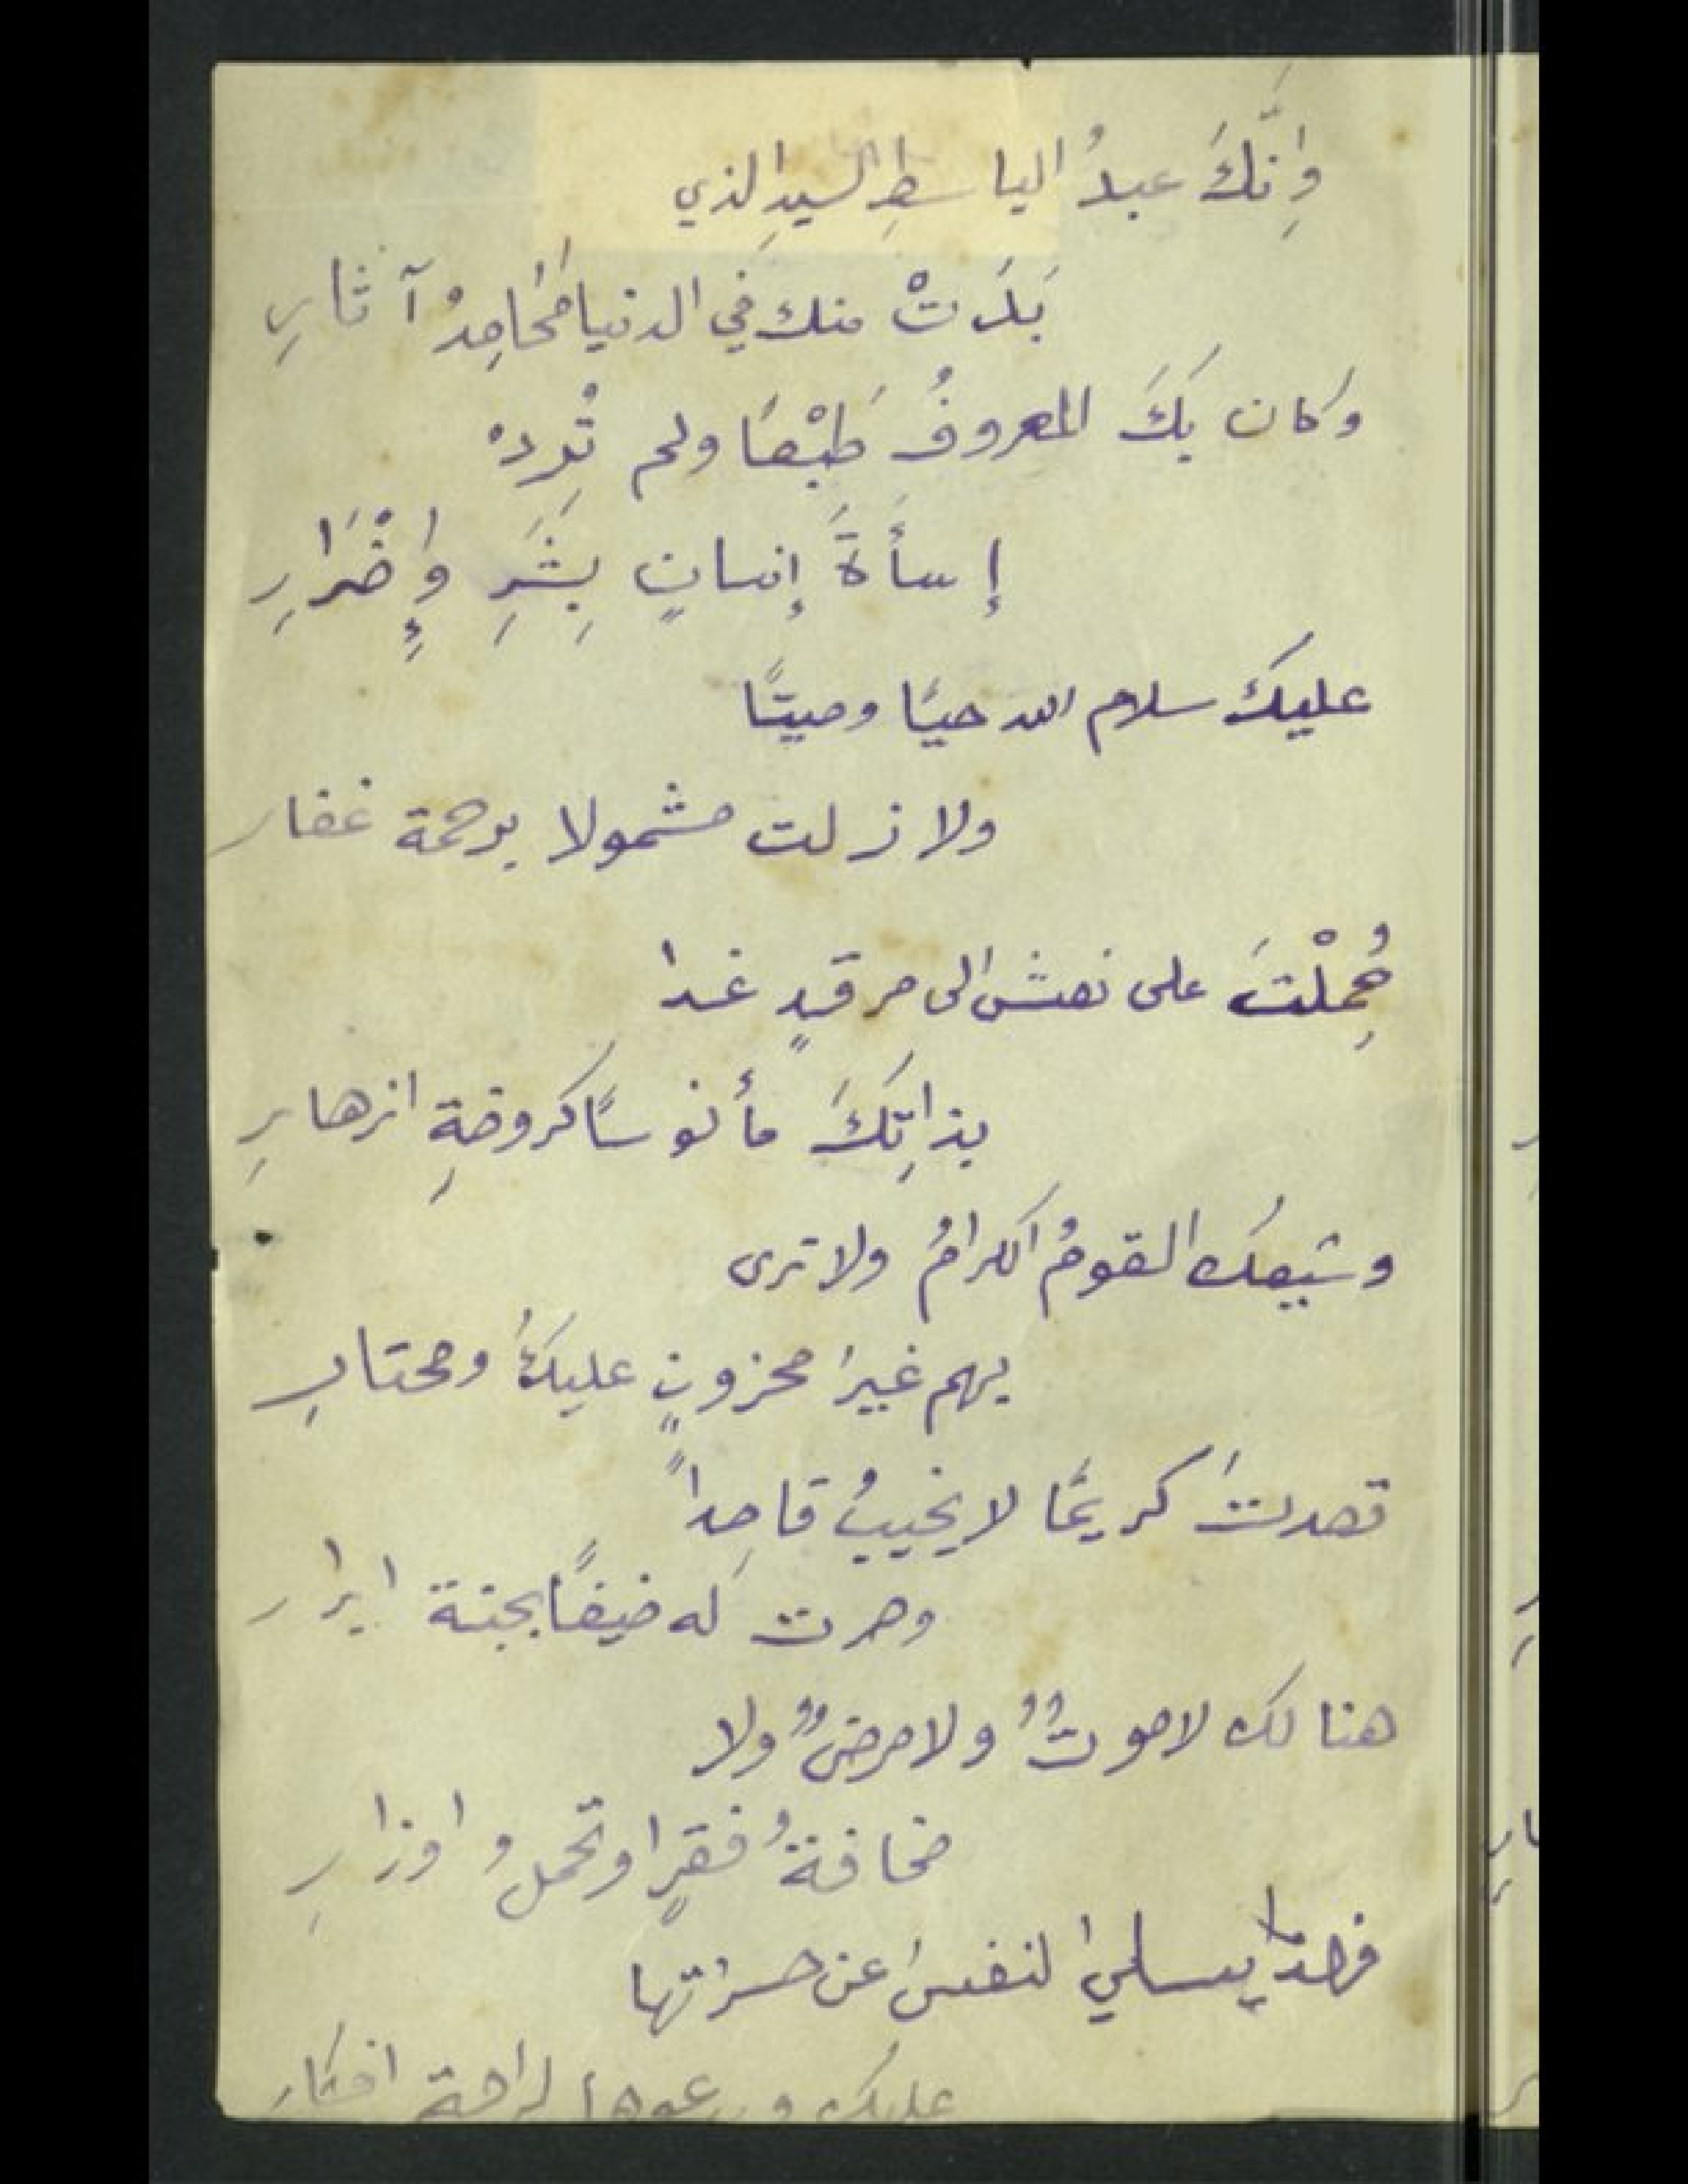 وَإِنَّكَ عبدُ الباسطِ السيدِ الذي
بَدَرَتْ منك في الدنيا مَحَامِدُ آثارِ
وكان بِكَ المعروفُ طَبْعًا ولم تُرِدْ
إسأَةَ إنسانٍ بِشَرٍ وإِضْرَارِ
عليكَ سلام الله حيًا وميتًا
ولا زلت مشمولا برحمة غفار
حُمِلْتَ على نعش الى مرقدٍ غدا
بذاتِكَ مأنوسًا كروضةِ ازهارِ
وشيعك القومُ الكرامُ ولا ترى
بهم غيرَ محزونٍ عليكَ ومحتارِ
قصدتَ كريمًا لا يخيبُ قاصِداً
وصرت له ضيفًا بجنة ابرار
هنالك لا موتٌ ولا مرضٌ ولا
مخافةُ فقرٍ او تحمل اوزارِ
فهذا يسلي النفسَ عن حسراتها
عليك ويدعوها لراحة افكار